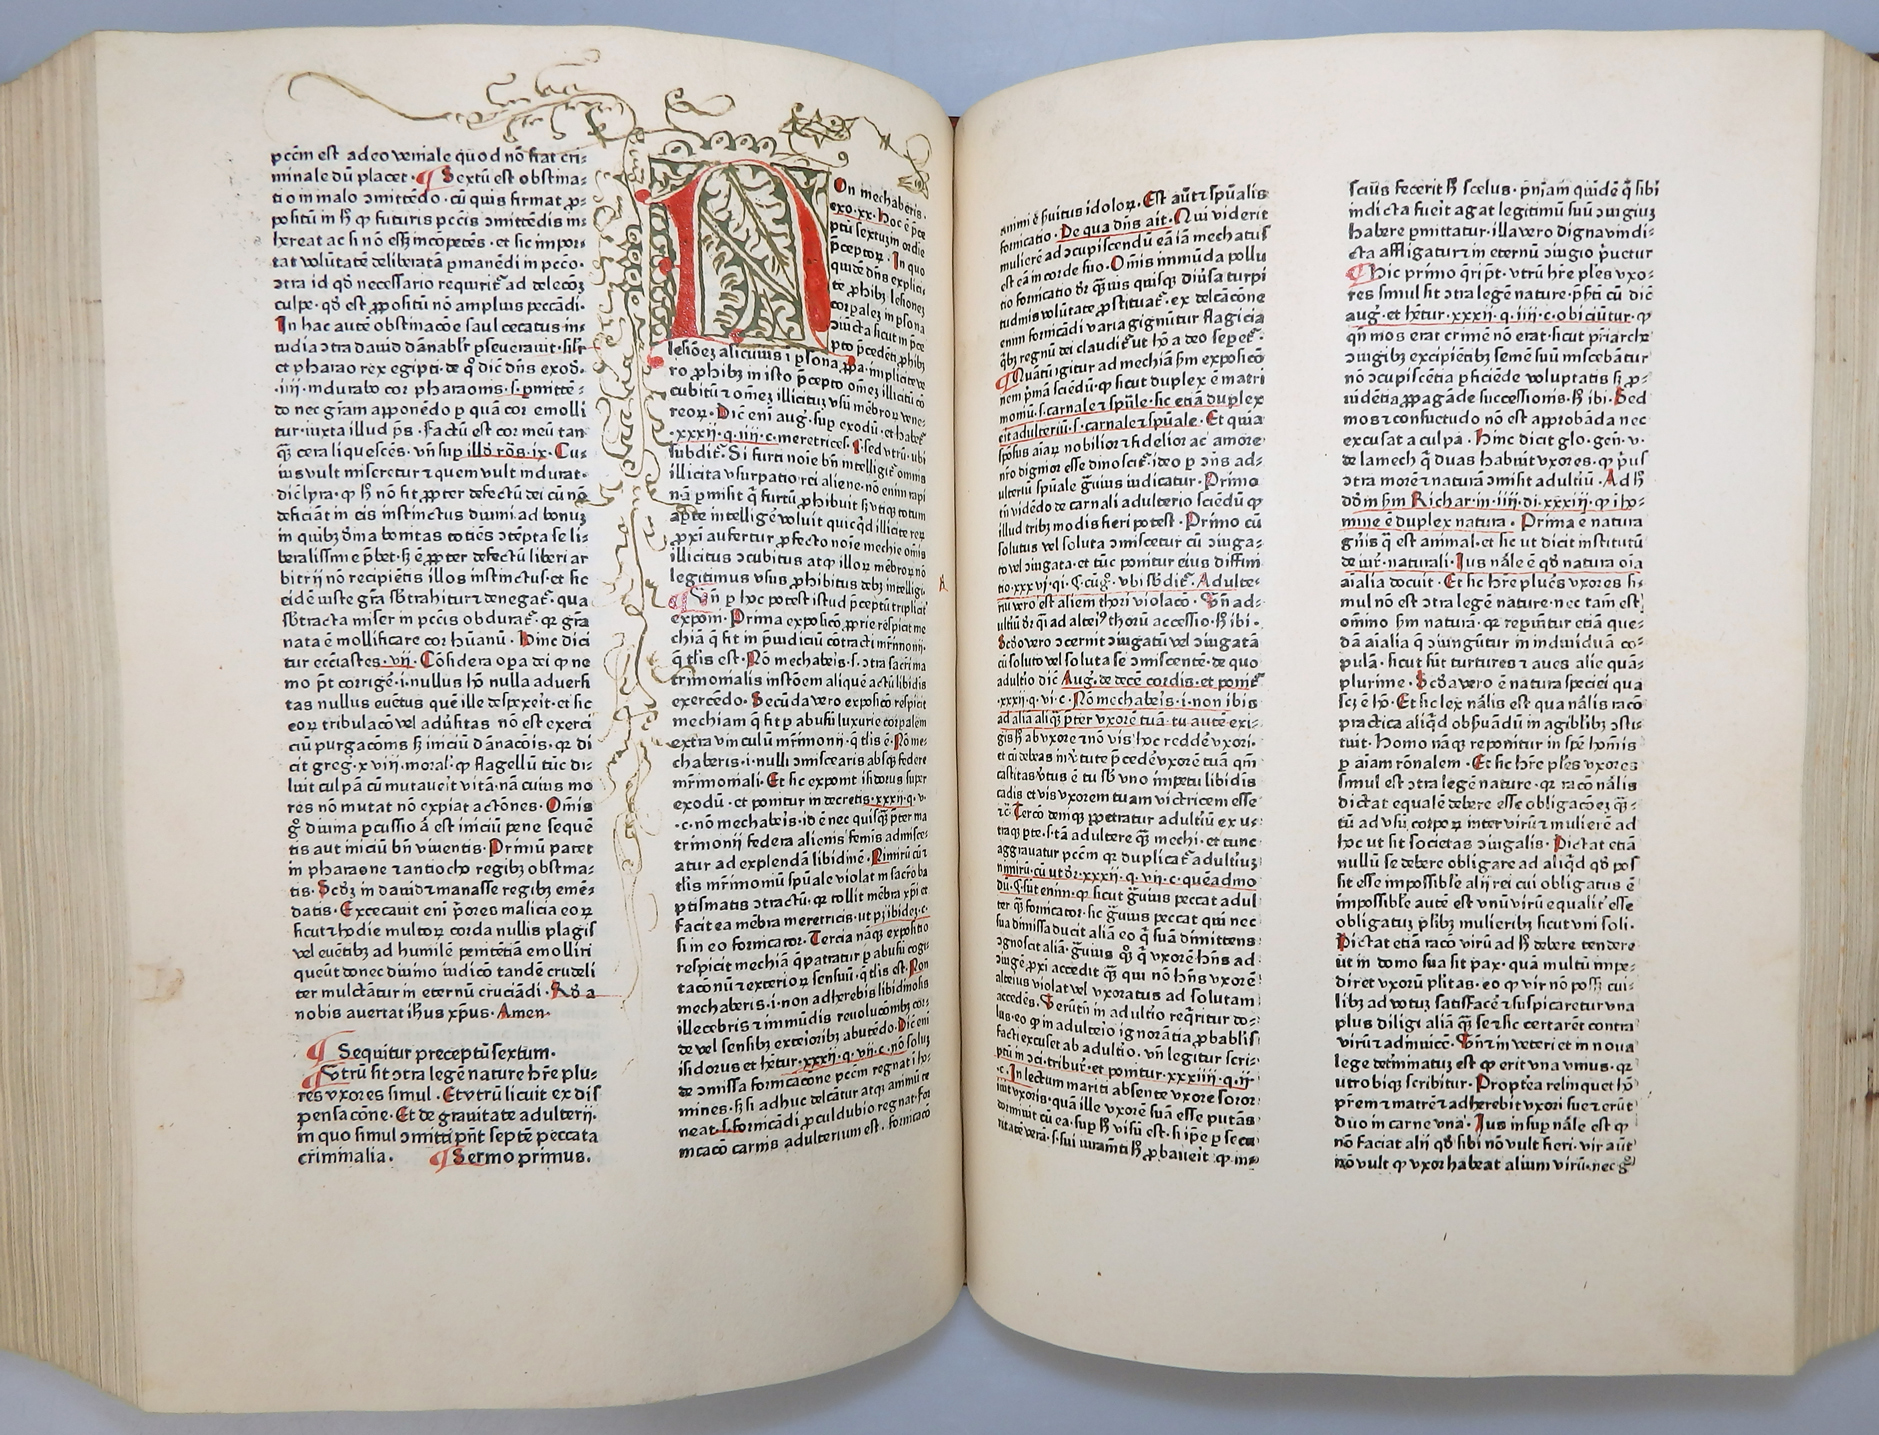 pccm̄ est adeo veniale quod nō fiat cri-
minale dū placet. ¶ Sextū est obstina-
tio in malo ɔmittēdo. cū quis firmat ꝓ-
positū in ħ ꝙ futuris pccīs ɔmittēdis in-
hereat ac si nō esset īcopetēs. et sic impor-
tat volūtatē deliberatā ꝑmanēdi in pccō.
ɔtra id qđ necessario requirit᷑ ad delecōꝫ
culpe. qđ est ꝓpositū nō amplius peccādi.
In hac autē obstinacōe saul cecatus in-
uidia ɔtra dauid dānablr̄ ꝑseuerauit. silr̄
et pharao rex egipti. de q̊ dic̄ dn̄s exođ.
.iiii. indurabo cor pharaonis. s. ꝑmittē-
do nec grām apponēdo ꝑ quā cor emolli
tur. iuxta illud ps̄. Factū est cor meū tan
qꝫ cera liquescēs. vn̄ sup illđ ro̅s. ix. Cu-
ius vult miseretur ⁊ quem vult indurat.
dic̄ lyra. ꝙ ħ nō fit ꝓpter defectū dei cū nō
deficiāt in eis instinctus diuini ad bonuꝫ
in quibꝫ đma bonitas tociēs ɔtēpta se li-
beralissime p̄bet. ħ ē ꝓpter defectū liberi ar
bitrij nō recipiētis illos instinctus. et sic
eidē iuste grā sb̄trahitur ⁊ denegat᷑. qua
sb̄tracta miser in pccīs obdurat᷑. qꝛ grā
nata ē mollificare cor hūanū. Hinc dici
tur eccīastes. vii. Cōsidera oꝑa dei ꝙ ne
mo pt̄ corrigē. i. nullus hō nulla aduersi
tas nullus euētus quē ille despexeit. et sic
eoꝝ tribulacō vel adūsitas nō est exerci
ciū purgacōnis ħ iniciū dānacōis. qꝛ di
cit greg. xviii. moral. ꝙ flagellū tūc di-
luit culpā cū mutaueit vitā. nā cuius mo
res nō mutat nō expiat actōnes. Om̄is
g̊ diuina ꝑcussio aut est iniciū pene sequē
tis aut iniciū bn̄ viuentis. Primū patet
in pharaone ⁊ antiocho regibꝫ obstina-
tis. Scđꝫ in dauid ⁊ manasse regibꝫ emē-
datis. Excecauit eni p̄ores malicia eoꝝ
sicut ⁊ hodie multoꝝ corda nullis plagis
vel euētibꝫ ad humilē penitētiā emolliri
queūt donec diuino iudicō tandē crudeli
ter mulctātur in eternū cruciādi. Qđ a
nobis auertat ih̄us xp̄us. Amen.
¶ Sequitur preceptū sextum.
¶ Vtrū sit ɔtra legē nature hr̄e plu-
res vxores simul. Et vtrū licuit ex dis
pensacōne. Et de grauitate adulterij.
in quo simul ɔmitti pn̄t septē peccata
criminalia. ¶ Sermo primus.
N
On mechaberis.
exo. xx. Hoc ē p̄ce
ptū sextuꝫ in ordīe
p̄ceptoꝝ. In quo
quidē dn̄s explici
te ꝓhibꝫ lesionē
corꝑalez in ꝑsona
ɔiūcta sicut in p̄ce
pto p̄cedēti ꝓhibꝫ
lesiōeꝫ alicuius ī ꝑsona ꝓpa. implicite ve
ro ꝓhibꝫ in isto p̄cepto om̄eꝫ illicitū cō
cubitū ⁊ om̄eꝫ illicituꝫ vsū mēbroꝝ vene-
reoꝝ. Dic̄ eni aug. sup exodū. et habet᷑
.xxxii. q. iiii. c. meretrices. ¶. sed vtrū. vbi
subdit᷑. Si furti noīe bn̄ intelligit᷑ omnis
illicita vsurpatio rei aliene. nō enim rapi
nā ꝑmisit q̄ furtū ꝓhibuit ħ vtiqꝫ totum
a ꝑte intelligē voluit quicqđ illicite reꝝ
ꝓxi aufertur ꝓfecto noīe mechie om̄is
illicitus ɔcubitus atqꝫ illoꝝ mēbroꝝ nō
legitimus vsus ꝓhibitus debꝫ intelligi.
¶ Vn̄ ꝑ hoc potest istud p̄ceptū triplicit᷑
exponi. Prima expositō ꝓprie respicit me
chiā q̄ fit in p̄iudiciū cōtracti mr̄imonij.
q̄ tl̄is est. Nō mechabeis. s. ɔtra sacri ma
trimonialis instōem aliquē actū libidis
exercēdo. Secūda vero expositō respicit
mechiam q̄ fit ꝑ abusū luxurie corꝑalem
extra vinculū mr̄imonij. q̄ tl̄is ē. Nō me-
chaberis. i. nulli ɔmiscearis absqꝫ federe
mr̄imoniali. Et sic exponit isidorus super
exodū. et ponitur in decretis. xxxii. q. v.
.c. nō mechabeis. id ē nec quisqꝫ p̄ter ma
trimonij federa alienis feminis admisce-
atur ad explendā libidinē. Nimirū cū ⁊
tl̄is mr̄imoniū spūale violat in sacro ba
ptismatis ɔtractū. qꝛ tollit mēbra xp̄i et
facit ea mēbra meretricis. vt pꝫ ibideꝫ. c.
si in eo fornicator. Tercia nāqꝫ expositio
respicit mechiā q̄ patratur ꝑ abusū cogi-
tacōnū ⁊ exterioꝝ sensuū. q̄ tl̄is est. Non
mechaberis. i. non adherebis libidinosis
illecebris ⁊ immūdis reuolucōnibꝫ cor-
de vel sensibꝫ exterioribꝫ abutēdo. Dic̄ eni
isidorus et hētur. xxxii. q. vii. c. nō soluꝫ
de ɔmissa fornicacōne pccm̄ regnat ī ho-
mines. ħ si adhuc delectātur atqꝫ animū te
neat. s. fornicādi ꝓculdubio regnat. For
nicacō carnis adulterium est. fornicacō
animi ē suitus idoloꝝ. Est aut̄ ⁊ spūalis
fornicatio. De qua dn̄s ait. Qui viderit
mulierē ad ɔcupiscendū eā iā mechatus
est eā in corde suo. Om̄is immūda pollu
tio fornicatio đr qꝫuis quisqꝫ diūsa turpi
tudinis volūtate ꝓstituat᷑. ex delcācōne
enim fornicādi varia gignūtur flagicia
q̄bꝫ regnū dei claudit᷑ vt hō a deo sepet᷑.
¶ Quātū igitur ad mechiā ħm expositiō
nem p̄mā sciēdū. ꝙ sicut duplex ē matri
moniū. s. carnale ⁊ spūle. sic etiā duplex
eit adulteriū. s. carnale ⁊ spūale. Et quia
sposus aīaꝝ nobilior ⁊ fidelior ac amore
nr̄o dignior esse dinoscit᷑. ideo ꝑ ɔn̄s ad-
ulteriū spūale g̊uius iudicatur. Primo
tn̄ vidēdo de carnali adulterio sciēdū ꝙ
illud tribꝫ modis fieri potest. Primo cū
solutus vel soluta ɔmiscetur cū ɔiuga-
to vel ɔiugata. et tūc ponitur eius diffini
tio. xxxvi. q. i. ¶. cūq̊. vbi sb̄dit᷑. Adulte-
riū vero est alieni thori violacō. Vn̄ ad-
ultiū đr q̄i ad alteri⁹ thorū accessio. ħ ibi.
Scđo vero ɔcernit ɔiugatū vel ɔiugatā
cū soluto vel soluta se ɔmiscentē. de quo
adultio dic̄ Aug. de decē cordis. et ponit᷑
.xxxii. q. vi. c. Nō mechabeis. i. non ibis
ad aliā aliqꝫ p̄ter vxorē tuā. tu autē exi-
gis ħ ab vxore ⁊ nō vis hoc reddē vxori.
et cū debeas in v̄tute p̄cedē vxorē tuā qm̄
castitas v̄tus ē tu sb̄ vno impetu libidis
cadis et vis vxorem tuam victricem esse
⁊c̄. Terciō deniqꝫ ꝑpetratur adultiū ex vt-
traqꝫ ꝑte. s. tā adultere qꝫ mechi. et tunc
aggrauatur pccm̄ qꝛ duplicat᷑ adultiuꝫ.
nimirū cū vt đr. xxxii. q. vii. c. quēadmo
dū. ¶. sūt enim. ꝙ sicut g̊uius peccat adul
ter qꝫ fornicator. sic g̊uius peccat qui nec
sua dimissa ducit aliā eo q̄ suā dimittens
ɔgnoscit aliā. g̊uius qꝫ q̄ vxorē hn̄s ad
ɔiugē ꝓxi accedit qꝫ qui nō hn̄s vxorē
alteius violat vel vxoratus ad solutam
accedēs. Verūtn̄ in adultio req̄ritur do-
lus. eo ꝙ in adulteio ignorātia ꝓbablis
facti excuset ab adultio. vn̄ legitur scri-
ptū in ɔci. tribuꝛ᷑. et ponitur. xxxiiii. q. ii.
.c. In lectum mariti absente vxore soror
iuit vxoris. quā ille vxorē suā esse putās
dormiuit cū ea. sup ħ visū est. si ip̄e ꝑ secu
ritatē verā. s. sui iuramēti ħ ꝓbaueit ꝙ in-
scius fecerit ħ scelus. pn̄iam quidē q̄ sibi
indicta fueit agat legitimū suū ɔiugiuꝫ
habere ꝑmittatur. illa vero digna vindi-
cta affligatur ⁊ in eternū ɔiugio p̄uetur
¶ Hic primo q̄ri pt̄. vtrū hr̄e pl̄es vxo-
res simul sit ɔtra legē nature. p̄hti cū dic̄
aug. et hētur. xxxii. q. iiii. c. obiciūtur. ꝙ
qn̄ mos erat crimē nō erat. sicut p̄riarche
ɔiugibꝫ excipiētibꝫ semē suū miscebātur
nō ɔcupiscētia ꝑficiēde voluptatis ħ ꝓ-
uidētia ꝓpagāde successionis. ħ ibi. Sed
mos ⁊ consuetudo nō est approbāda nec
excusat a culpa. Hinc dicit glo. gen̄. v.
de lamech q̄ duas habuit vxores. ꝙ p̄us
ɔtra morē ⁊ naturā ɔmisit adultiū. Ad ħ
đom ħm Richar. in. iiii. di. xxxiii. ꝙ ī ho-
mine ē duplex natura. Prima ē natura
gn̄is q̄ est animal. et sic vt dicit institutū
de iur᷑. naturali. Ius nāle ē qđ natura oīa
aīalia docuit. Et sic hr̄e plue̅s vxores si-
mul nō est ɔtra legē nature. nec tam̄ est
om̄ino ħm natura. qꝛ reꝑiūtur etiā que-
dā aīalia q̄ ɔiungūtur in indiuiduā co-
pulā. sicut sūt turtures ⁊ aues alie quā-
plurime. Scđa vero ē natura speciei qua
scꝫ ē hō. Et sic lex nālis est qua nālis racō
practica aliqđ obsuādū in agiblibꝫ ɔsti-
tuit. Homo nāqꝫ reponitur in spē hoīnis
ꝑ aīam rōnalem. Et sic hr̄e pl̄es vxores
simul est ɔtra legē nature. qꝛ racō nālis
dictat equalē debere esse obligacōeꝫ qꝫ-
tū ad vsū corpoꝝ inter virū ⁊ mulierē ad
hoc vt sit societas ɔiugalis. Dictat etiā
nullū se debere obligare ad aliqđ qđ pos
sit esse impossibl̄e alij rei cui obligatus ē
impossibl̄e autē est vnū virū equalit᷑ esse
obligatuꝫ pl̄ibꝫ mulieribꝫ sicut vni soli.
Dictat etiā racō virū ad ħ debere tendere
vt in domo sua sit pax. quā multū impe-
diret vxorū pl̄itas. eo ꝙ vir nō possꝫ cui-
libꝫ ad votuꝫ satisfacē ⁊ suspicaretur vna
plus diligi aliā qꝫ se ⁊ sic certarēt contra
virū ⁊ adinuicē. Vn̄ ⁊ in veteri et in noua
lege det̄minatuꝫ est ꝙ erit vna vnius. qꝛ
vtrobiqꝫ scribitur. Propt̄ea relinquet hō
pr̄em ⁊ matrē ⁊ adherebit vxori sue ⁊ erūt
duo in carne vna. Ius insup nāle est ꝙ
nō faciat alij qđ sibi nō vult fieri. vir aūt
nō vult ꝙ vxor habeat alium virū. nec g̊